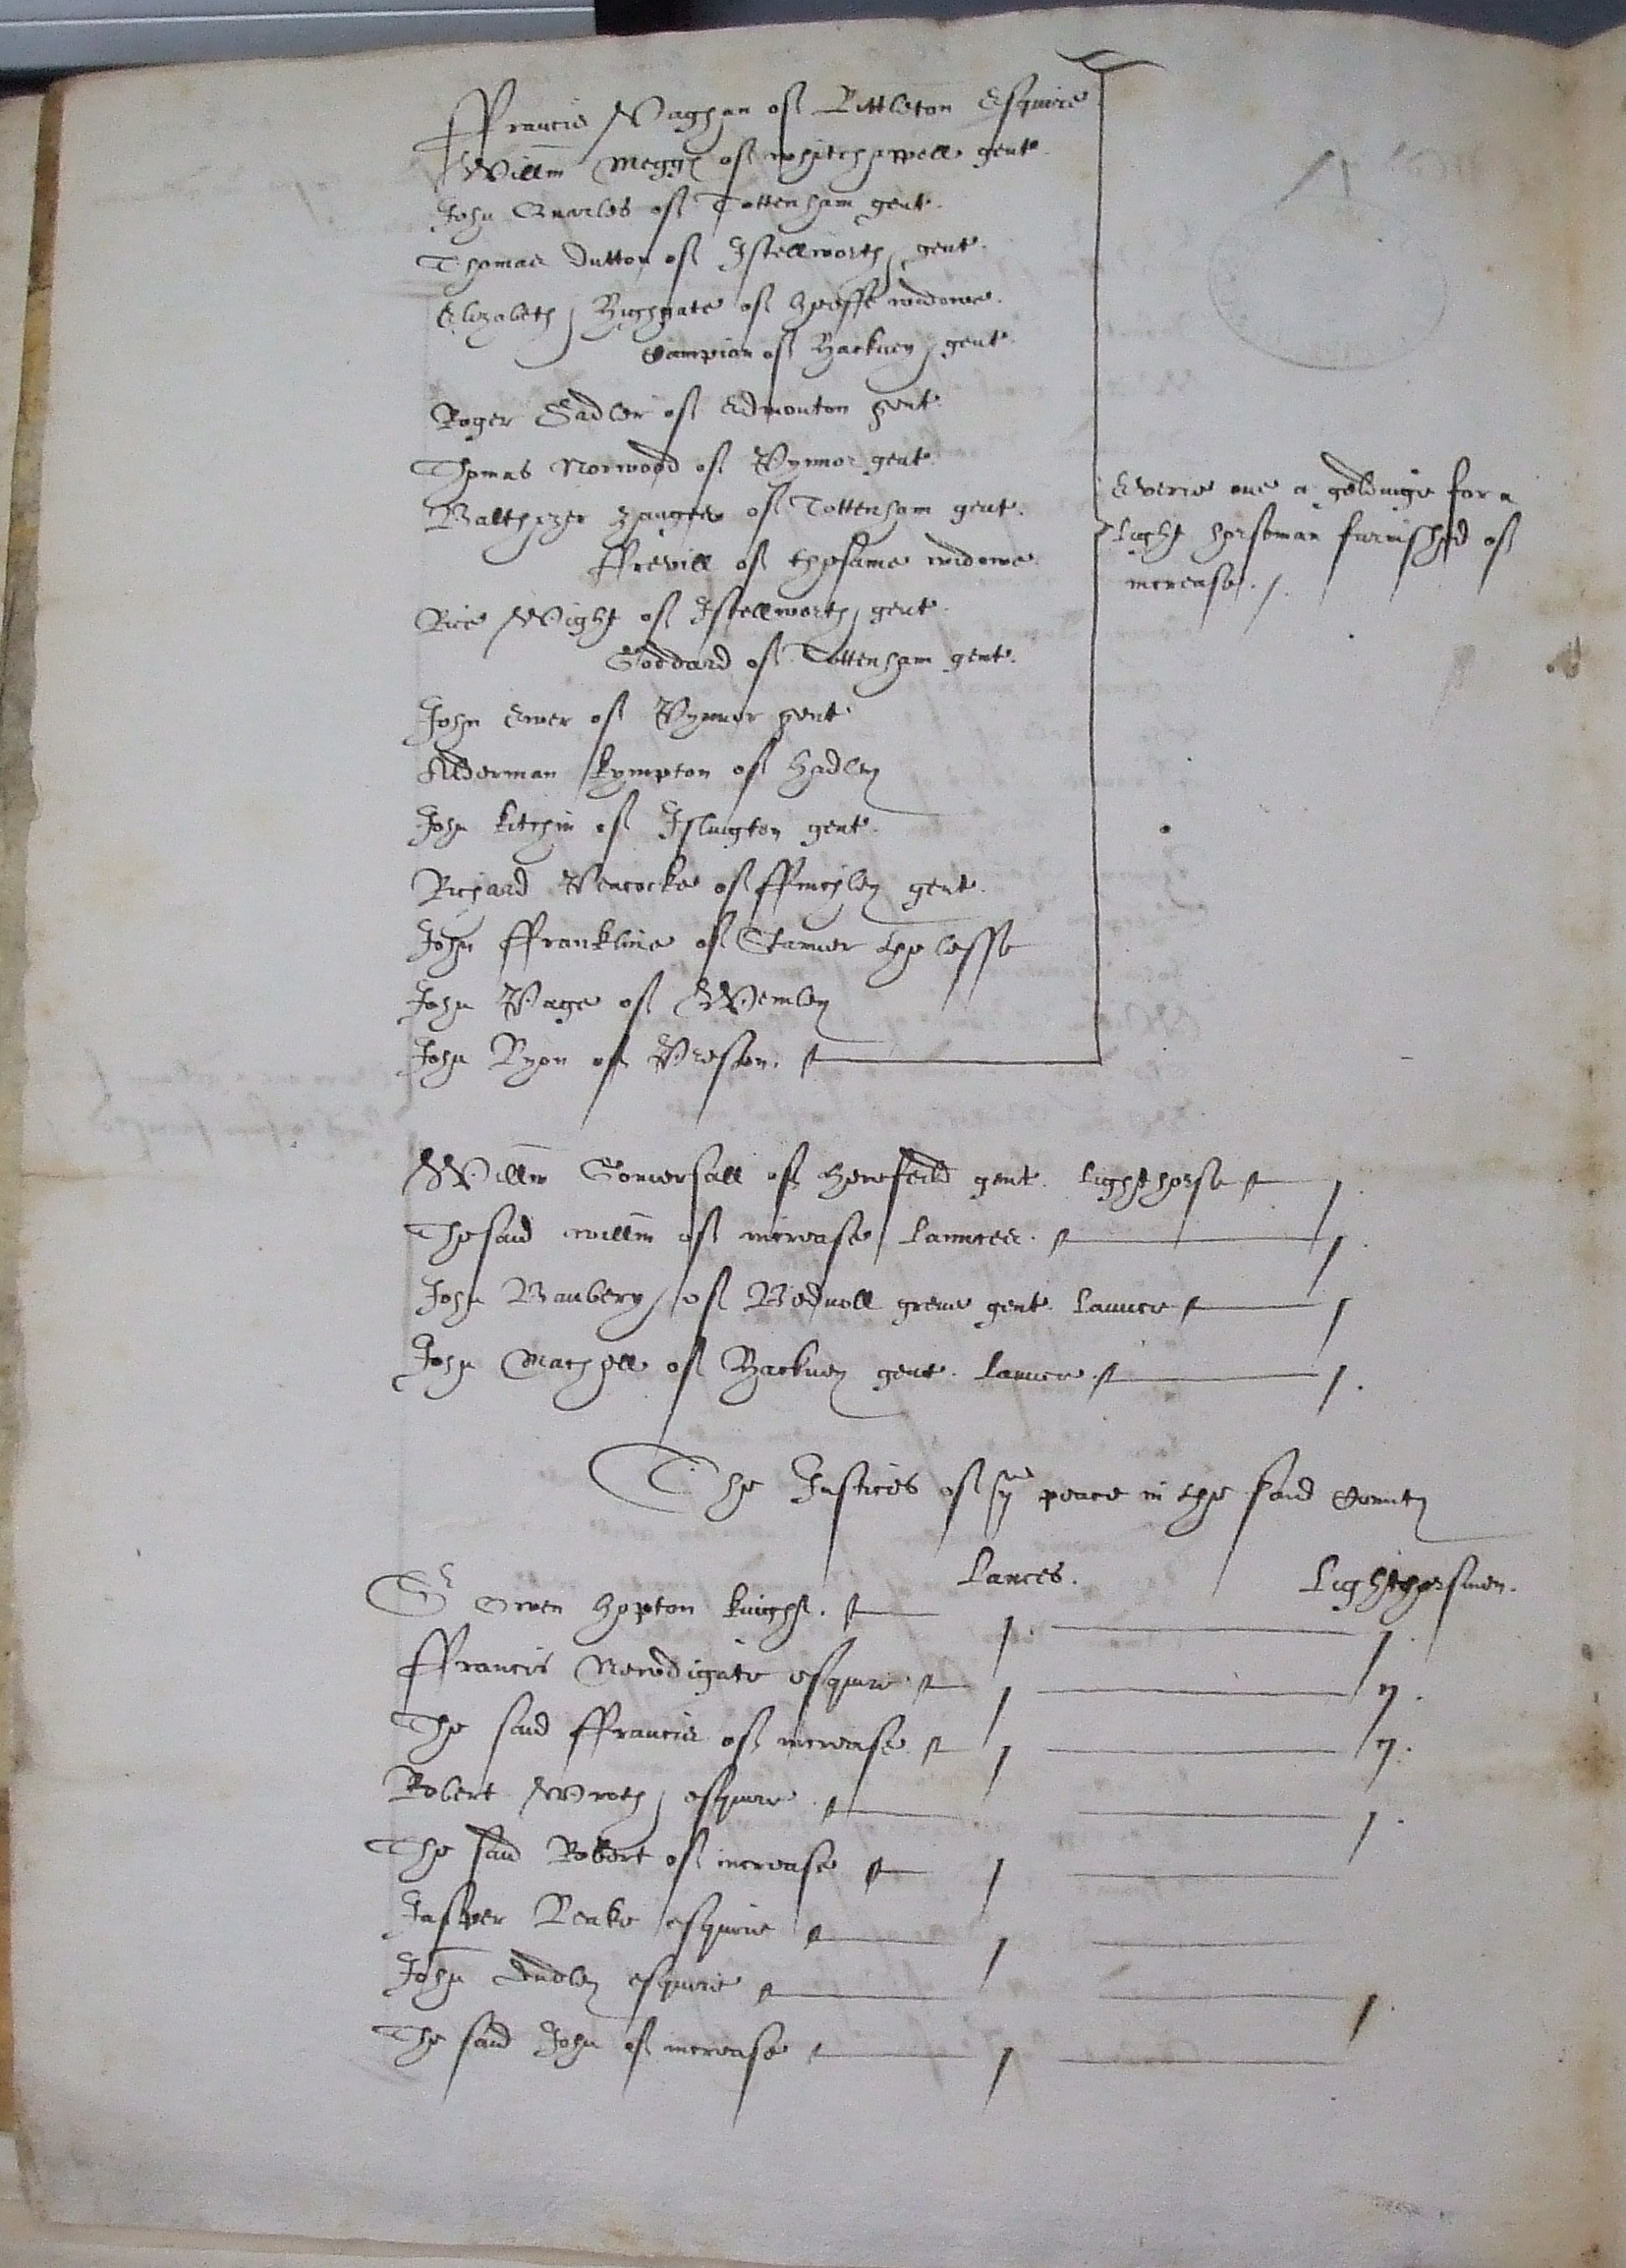 ffrancis Vaghan of Littleton Esquire
Willm Meggs of whitchappell gent.
John Quarles of Tottenham gent.
Thomas Dutton of Istellworth gent.
Elizabeth Highgate of widowe.
Campion of Hackney gent.
Roger Sadler of Edmonton gent.
Thomas Norwood of Pynnor gent.
Balthazer Zanger of Tottenham gent.
ffrevill of the same widowe
Rice Wight of Istellworth gent.
Goddard of Tottenham gent.
John Ewer of Pynner gent
Alderman Kympton of Hadley
John Kitchin of Islington gent.
Richard Peacocke of ffinchley gent.
John ffrankline of Stanner the lesse
John Page of Wemley
John Lyon of Preston.
Everie one a geldinge for a
light horseman furnished of
increase.
Willm Gomersall of Herefeild gent. lighthorse j.
The said willm of increase launces. j.
John Banbery of Bednoll grene gent. launce j
John Machell of Hackney gent. launce. j.
The Justices of ye peace in the said County
Lances. Lighthorsmen.
Sr Owen Hopton knight. j. j.
ffrancis Newdigate esquire j ij.
The said ffrancis of increase j ij.
Robert Wroth esquire j.
The said Robert of increase j
Jasper Leake esquire j
John Dudley esquire j
The said John of increase j